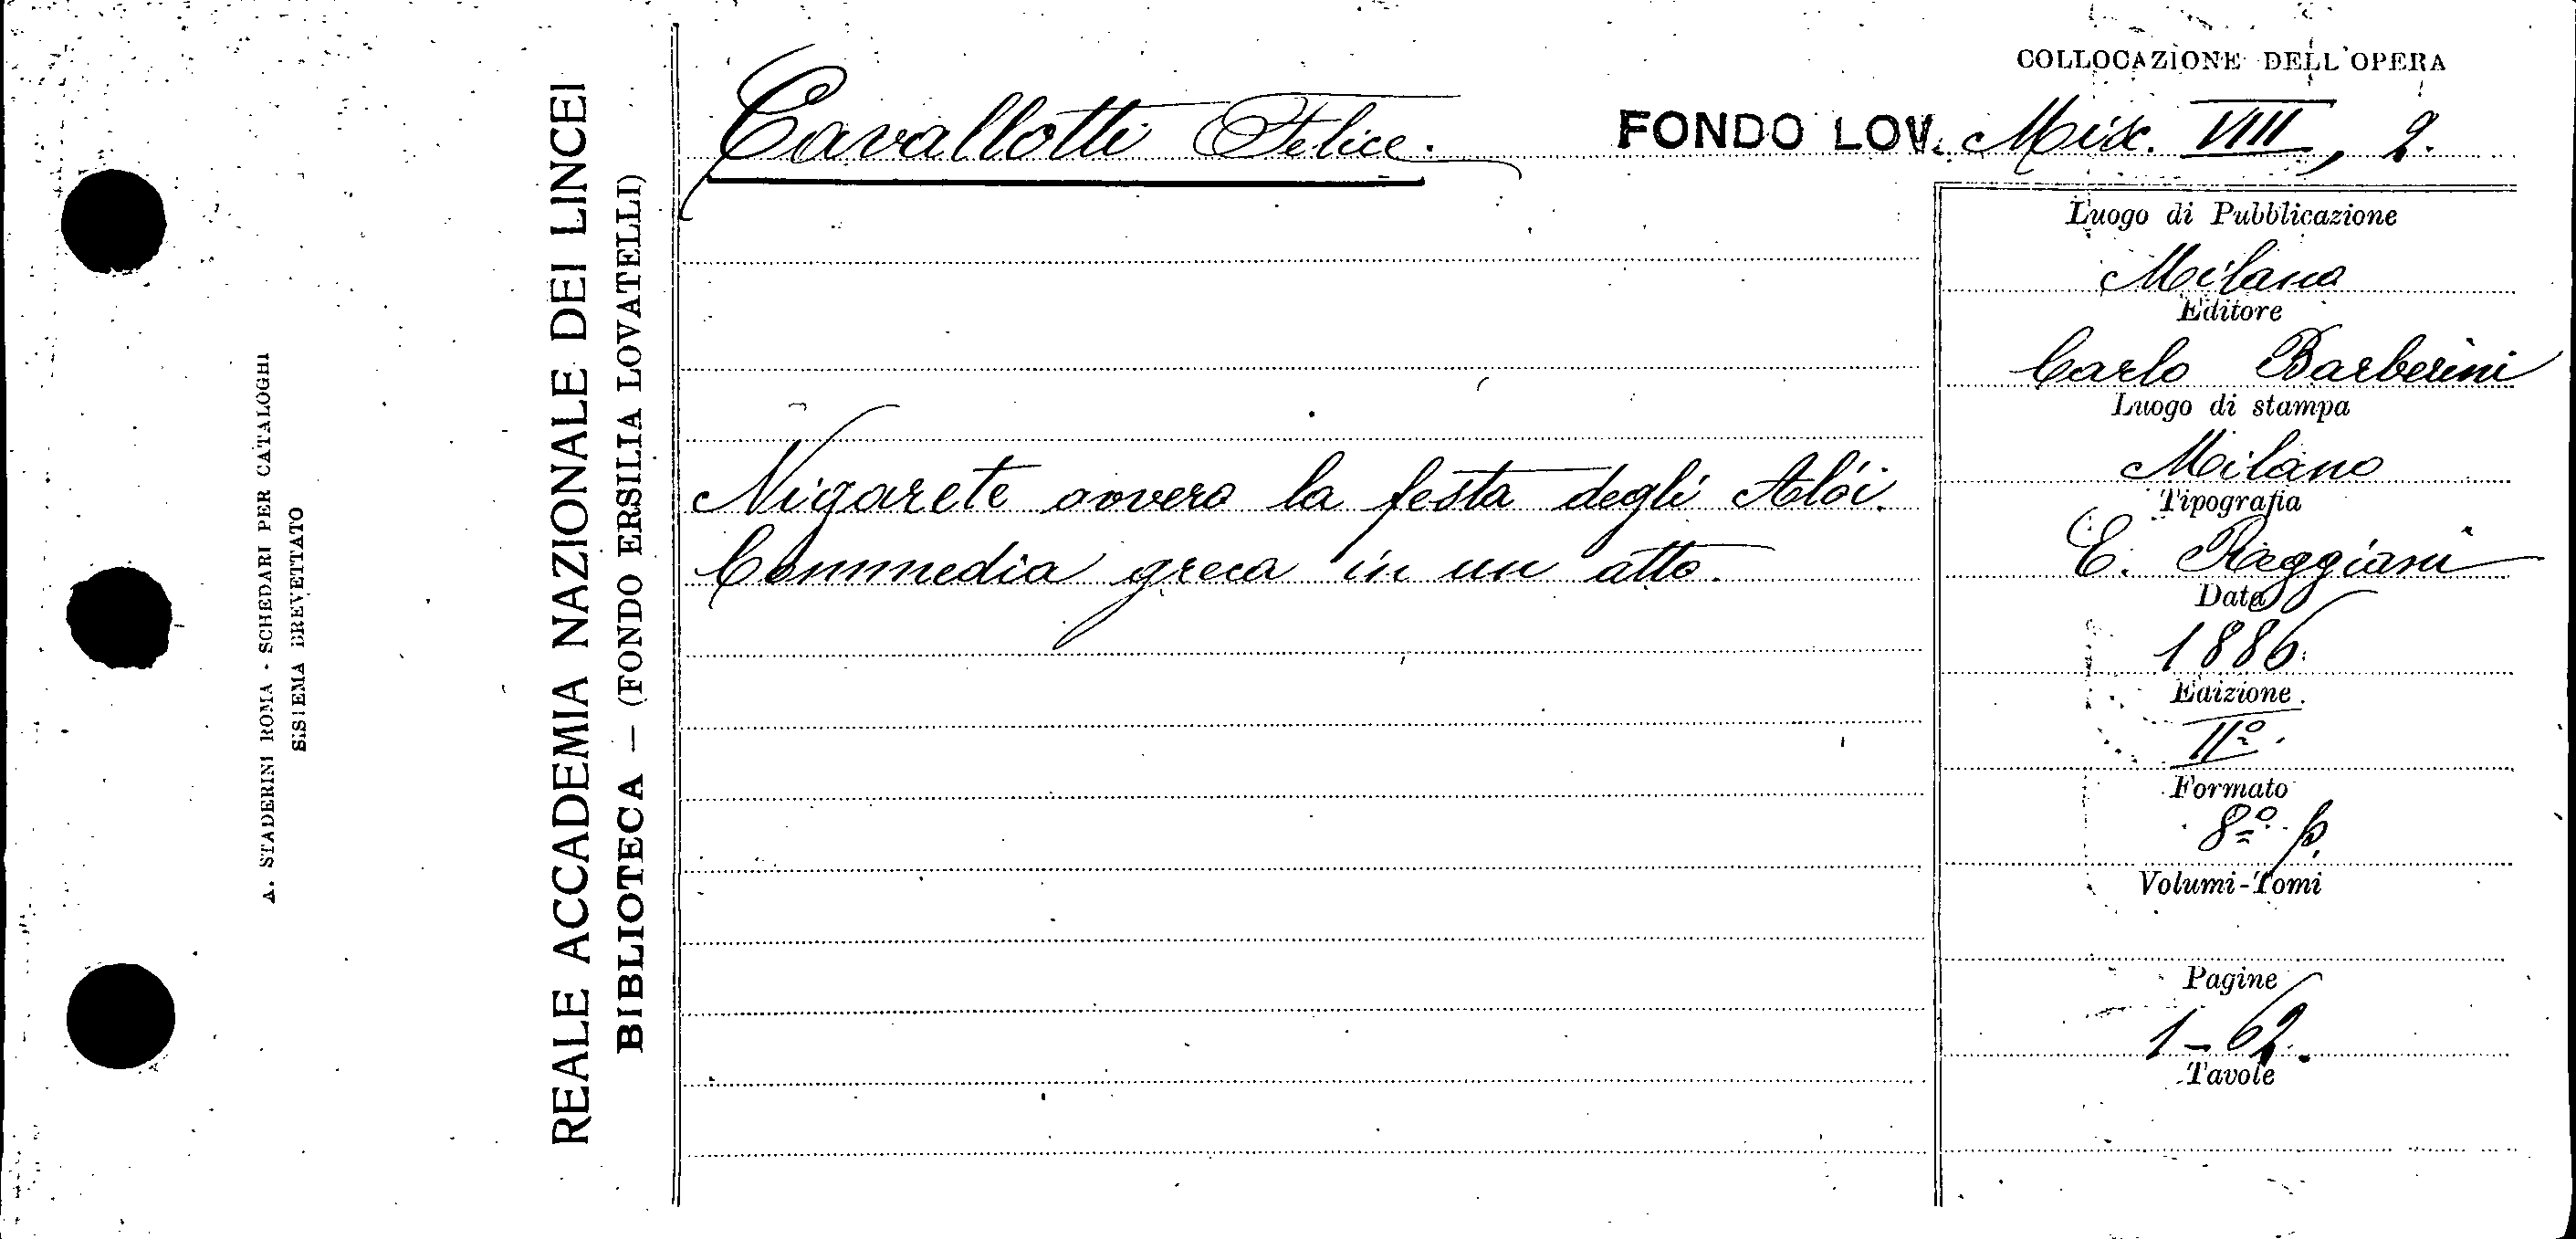 A. STADERINI ROMA - SCHEDARI PER CATALOGHI
SISTEMA BREVETTATO
REALE ACCADEMIA NAZIONALE DEI LINCEI
BIBLIOTECA — (FONDO ERSILIA LOVATELLI)
Cavallotti Felice.
COLLOCAZIONE DELL'OPERA
FONDO LOV. Misc. VIII, 2.
Nigarete ovvero la festa degli Alòi.
Commedia greca in un atto.
Luogo di Pubblicazione
Milano
Editore
Carlo Barberini
Luogo di stampa
Milano
Tipografia
E. Reggiani
Data
1886.
Edizione
IIº.
Formato
8º p.
Volumi-Tomi
Pagine
1-62.
Tavole